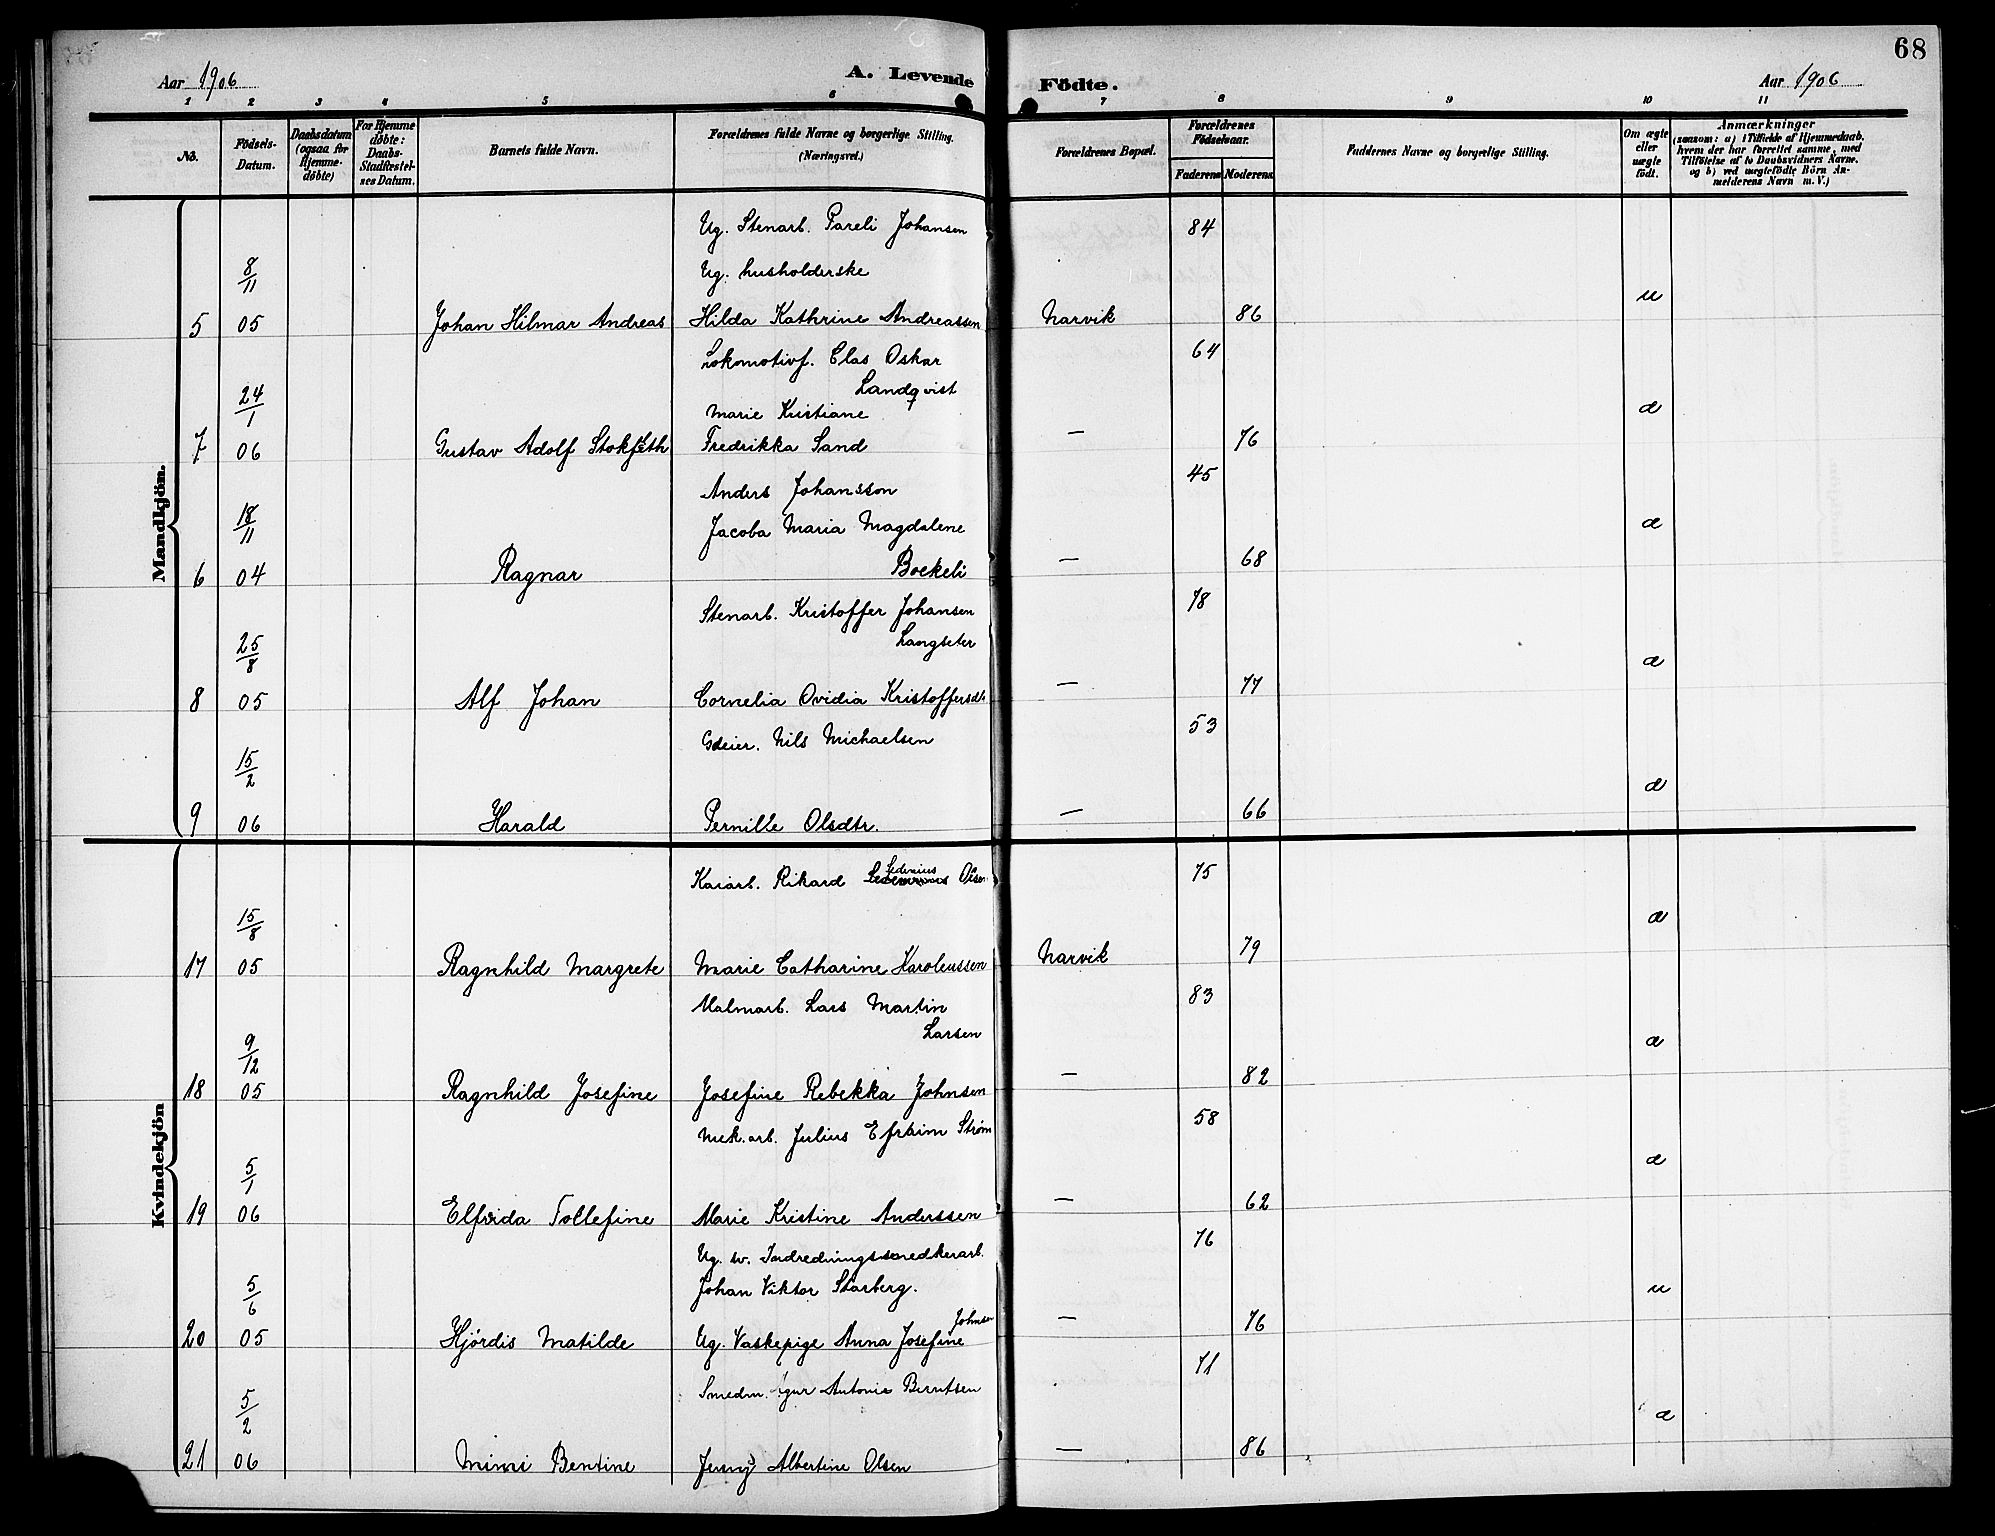 68
Aar 1906
A. Levende Födte.
Aar 1906
1 2 3 4 5 6 7 8 9 10 11
No.
Födsels-Datum.
Daabsdatum (ogsaa for Hjemme-döbte)
For Hjemme döbte: Daabs-Stadfæstel-ses Datum.
Barnets fulde Navn.
Forældrenes fulde Navne og borgerlige Stilling. (Næringsvei.)
Forældrenes Bopæl.
Forældrenes Födselsaar.
Faderens
Moderens
Faddernes Navne og borgerlige Stilling.
Om ægte eller uægte födt.
Anmærkninger
(saasom: a) i Tilfælde af Hjemmedaab. hvem der har forrettet samme, med Tilföielse af to Daabsvidners Navne. og b) ved uægtefödte Börn An-melderens Navn m. V.)
Mandkjön.
Ug. Stenarb. Pareli Johansen 84
8/11 Ug. husholderske u
5 05 Johan Hilmar Andreas Hilda Kathrine Andreassen Narvik 86
Lokomotivf. Clas Oskar 64
Landqvist
24/1 Marie Kristiane æ
7 06 Gustav Adolf Stokfleth Fredrikka Sand — 76
Anders Johansson 45
18/11 Jacoba Maria Magdalene æ
6 04 Ragnar Boekeli — 68
Stenarb. Kristoffer Johansen 78
25/8 Langseter æ
8 05 Alf Johan Cornelia Ovidia Kristoffersdtr — 77
Gdeier. Nils Michaelsen 53
15/2 æ
9 06 Harald Pernille Olsdtr. — 66
Kvindekjön
Sedenius
Kaiarb. Rikard Olsen 75
15/8 æ
17 05 Ragnhild Margrete Marie Catharine Karoleussen Narvik 79
Malmarb. Lars Martin 83
Larsen
9/12 æ
18 05 Ragnhild Josefine Josefine Rebekka Johnsen — 82
Mek.arb. Julius Efraim Strøm 58
5/1 æ
19 06 Elfrida Tollefine Marie Kristine Anderssen — 62
Ug. sv. Indredningssnedkerarb. 76
5/6 Johan Viktor Starberg. u
Johnsen
20 05 Hjördis Matilde Ug. Vaskepige Anna Josefine — 76
Smedm. Antonie Berntsen 71
5/2 æ
21 06 Mimi Bentine Jenny Albertine Olsen — 86